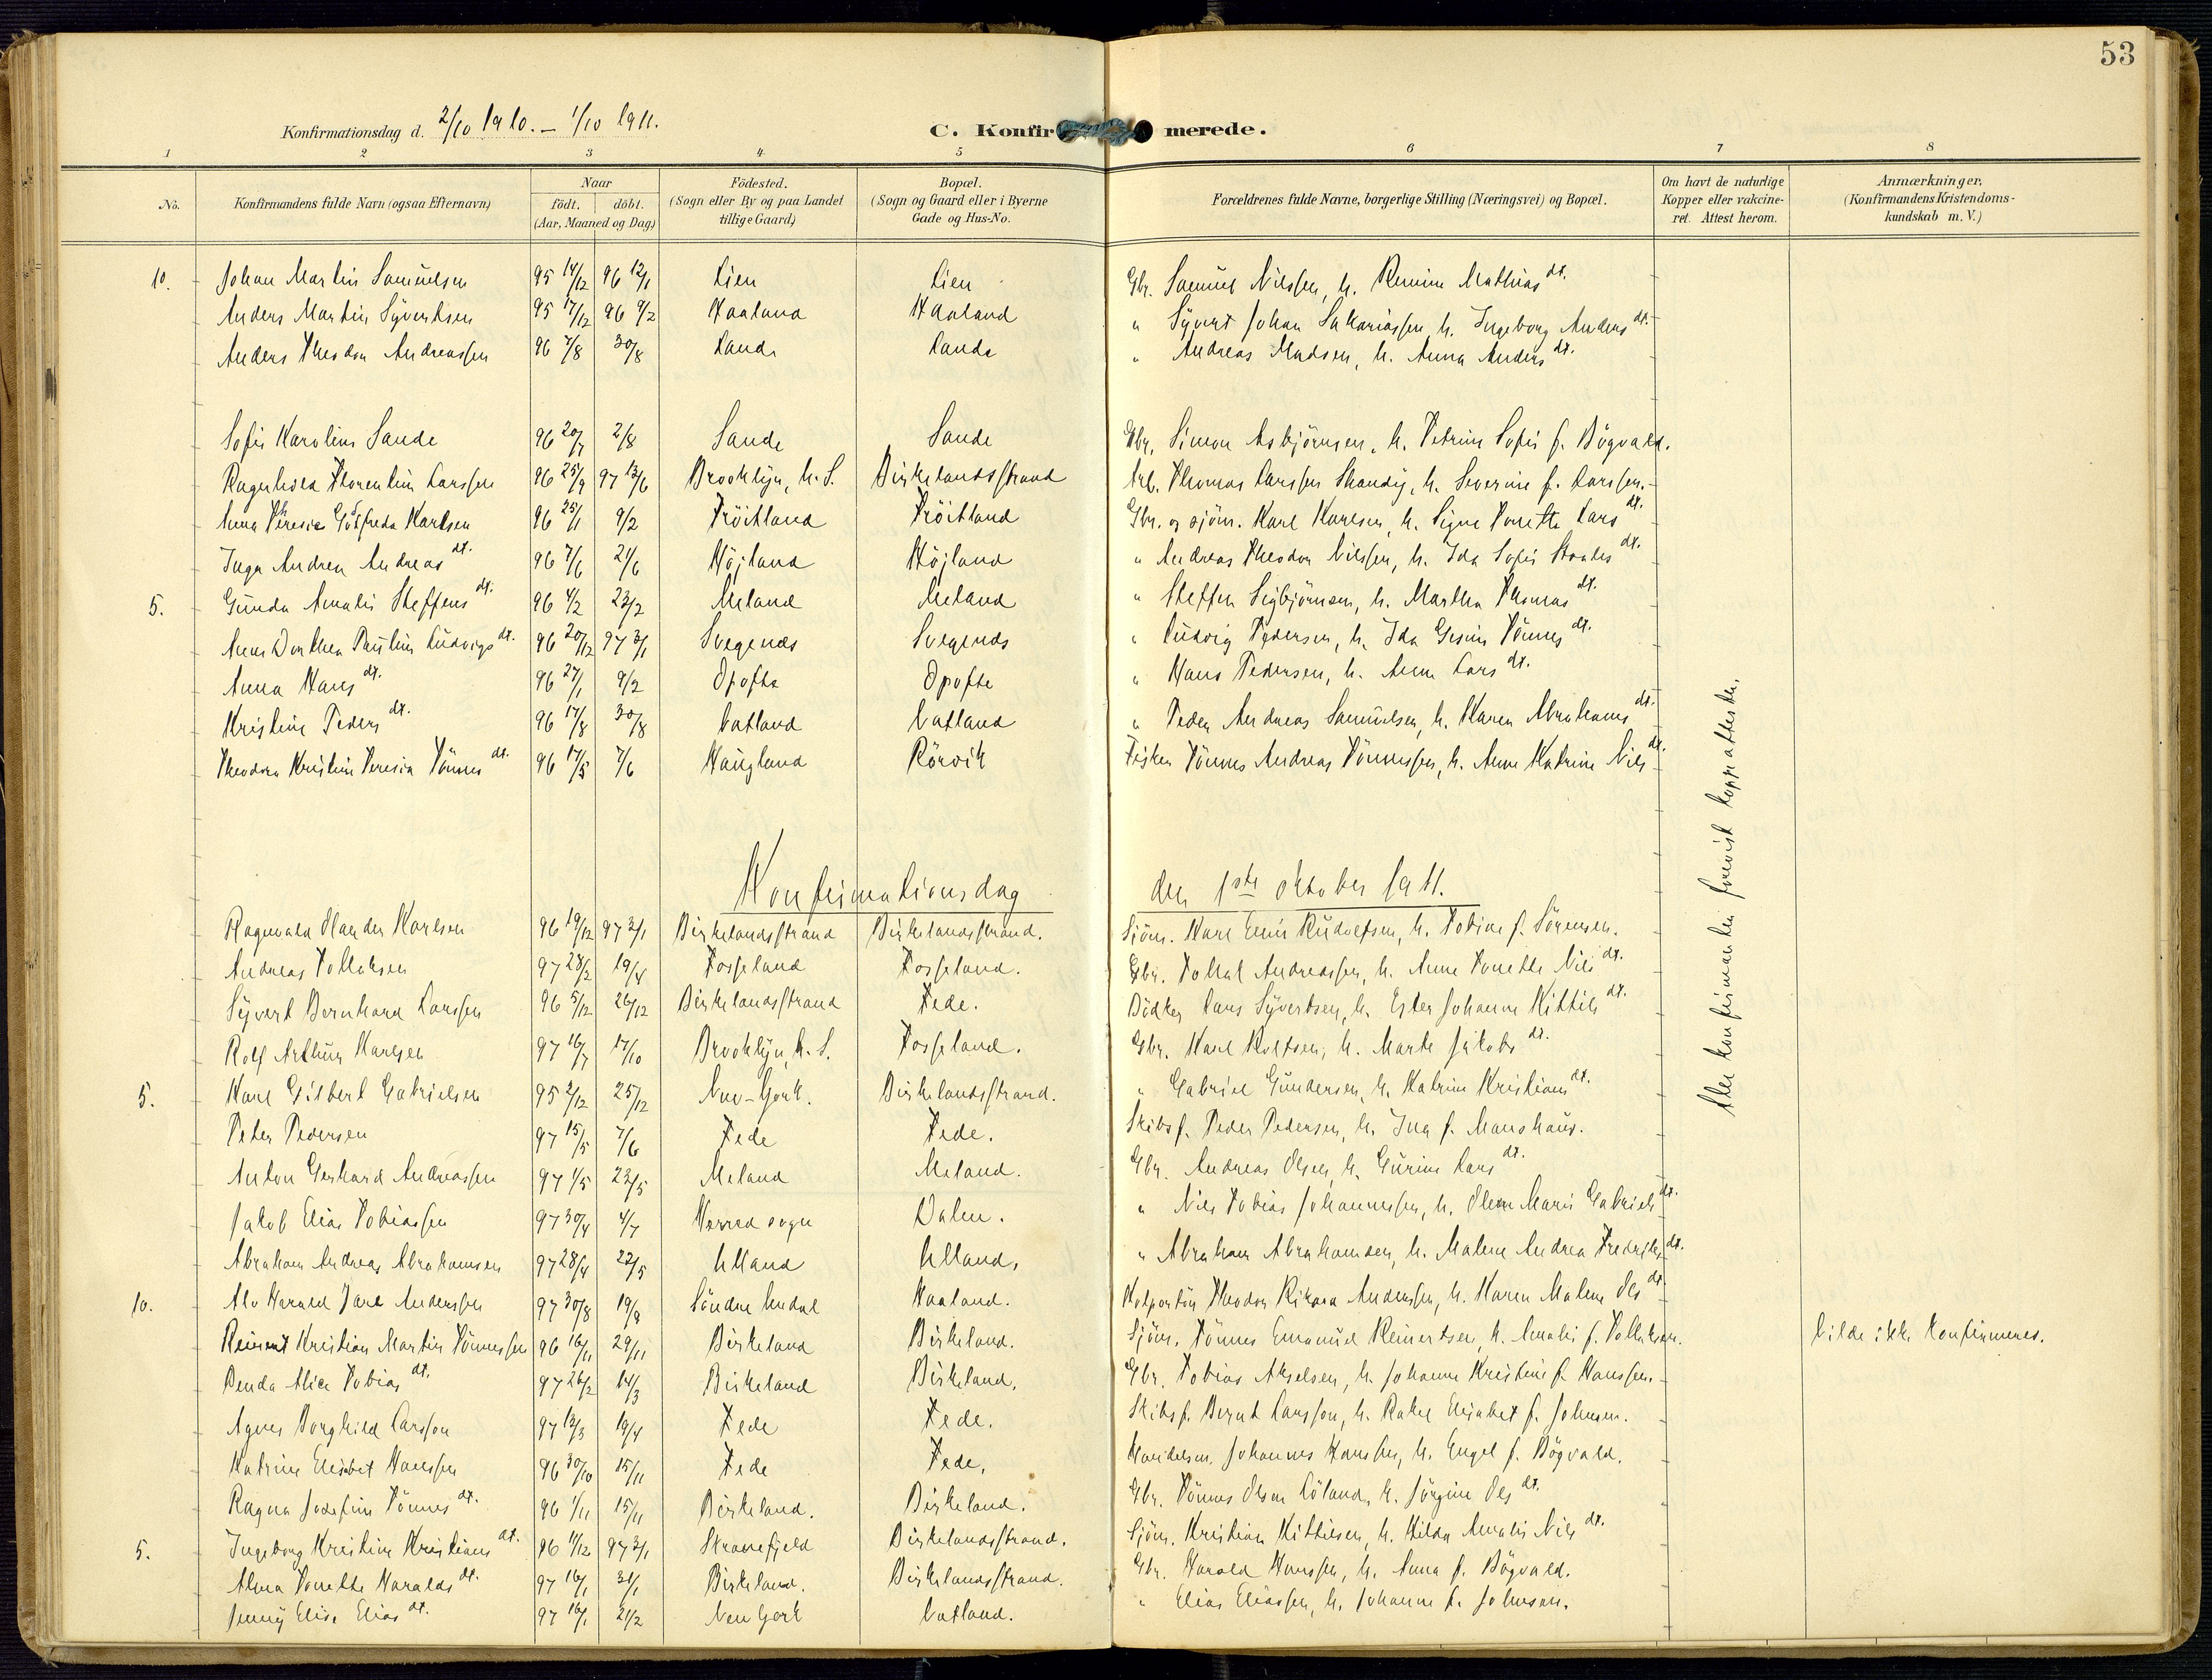 53
Konfirmationsdag d. 2/10 1910. – 1/10 1911.
C. Konfirmerede.
1 2 3 4 5 6 7 8
No. Konfirmandens fulde Navn (ogsaa Efternavn) Naar födt. döbt. (Aar, Maaned og Dag) Födested. (Sogn eller By og paa Landet tillige Gaard) Bopæl. (Sogn og Gaard eller i Byerne Gade og Hus-No. Forældrenes fulde Navne, borgerlige Stilling (Næringsvei) og Bopæl. Om havt de naturlige Kopper eller vakcineret. Attest herom. Anmærkninger. (Konfirmandens Kristendomskundskab m. V.)
10. Johan Martin Samuelsen 95 14/12 96 12/1 Lien Lien Gbr. Samuel Nilssen, h. Remine Mathias dt.
Anders Martin Syvertsen 95 17/12 96 9/2 Haaland Haaland " Syvert Johan Sakariassen, h. Ingeborg Anders dt.
Anders Theodor Andreassen 96 7/8 30/8 Lande Lande " Andreas Madsen, h. Anna Anders dt.
Sofie Karoline Sande 96 20/7 2/8 Sande Sande Gbr. Simon Asbjörnsen, h. Petrine Sofie f. Bögvald.
Ragnhild Florentine Larssen 96 25/9 97 13/6 Brooklyn, U.S. Birkelandsstrand Arb. Thomas Larssen Skandy, h. Severine f. Larssen.
Anna Theresie Godfreda Karlsen 96 25/1 9/2 Fröitland Fröitland Gbr. og sjöm. Karl Karlsen, h. Signe Tonette Lars dt.
Inga Andrea Andreas dt. 96 7/6 21/6 Höjland Höjland " Andreas Theodor Nilssen, h. Ida Sofie dt.
5. Gunda Amalie Steffens dt. 96 4/2 23/2 Meland Meland " Steffen Sigbjörnsen, h. Martha Thomas dt.
Anna Dorthea Pauline Ludvigs dt. 96 20/12 97 3/1 Svegenes Svegenes " Ludvig Pedersen, h. Ida Gesine Tönnes dt.
Anna Hans dt. 96 27/1 9/2 Opofte Opofte " Hans Pedersen, h. Anna Lars dt.
Kristine Peders dt. 96 17/8 30/8 Vatland Vatland " Peder Andreas Samuelsen, h. Karen Abrahams dt.
Theodora Kristine Teresia Tönnes dt. 96 17/5 7/6 Haugland Rörvik Fisker Tönnes Andreas Tönnessen, h. Anne Katrine Nils dt.
Alle konfirmander forevist koppeattester.
Konfirmationsdag den 1ste oktober 1911.
Ragnvald Olander Karlsen 96 19/12 97 3/1 Birkelandsstrand Birkelandsstrand. Sjöm. Karl Emil Rudolfsen, h. Tobine f. Sörensen.
Andreas Tollaksen 97 28/2 19/4 Fosseland Fosseland. Gbr. Tollak Andreassen, h. Anne Tonette Nils dt.
Syvert Bernhard Larssen 96 5/12 26/12 Birkelandsstrand Fede. Bödker Lars Syvertsen, h. Ester Johanne Kittils dt.
Rolf Arthur Karlsen 97 16/7 17/10 Brooklyn, U.S. Fosseland. Gbr. Karl Rolfsen, h. Marte Jakobs dt.
5. Karl Gilbert Gabrielsen 95 2/12 25/12 New-York. Birkelandsstrand. " Gabriel Gundersen, h. Katrine Kristians dt.
Peter Pedersen 97 15/5 7/6 Fede Fede. Skibsf. Peder Pedersen, h. Ina f. Manshaus.
Anton Gerhard Andreassen 97 1/5 23/5 Meland Meland. Gbr. Andreas Olsen, h. Gurine Lars dt.
Jakob Elias Tobiassen 97 30/4 4/7 Herred sogn Dalen. " Nils Tobias Johannessen, h. Olene Marie Gabriels dt.
Abraham Andreas Abrahamsen 97 28/4 22/5 Ulland Ulland. " Abraham Abrahamsen, h. Malene Andrea Fredriks dt.
10. Alv Harald Jarl Anderssen 97 30/8 19/9 Söndre Undal Haaland. Kolportör Theodor Rikard Anderssen, h. Karen Malene Ols dt.
Reinert Kristian Martin Tönnessen 96 16/11 29/11 Birkeland Birkeland. Sjöm. Tönnes Emanuel Reinertsen, h. Amalie f. Tollaksen. Vilde ikke konfirmeres.
Benda Alice Tobias dt. 97 26/2 14/3 Birkeland Birkeland. Gbr. Tobias Akselsen, h. Johanne Kristine f. Hanssen.
Agnes Borghild Larsson 97 13/3 19/4 Fede Fede. Skibsf. Bernt Larsson, h. Rakel Elisabet f. Johnsen.
Katrine Elisabet Hanssen 96 30/10 15/11 Fede Fede. Handelsm. Johannes Hanssen, h. Engel f. Bögvald.
Ragna Josefine Tönnes dt. 96 1/11 15/11 Birkeland. Birkeland. Gbr. Tönnes Olsen Löland, h. Jörgine Ols dt.
5. Ingeborg Kristine Kristians dt. 96 11/12 97 3/1 Skranefjeld Birkelandsstrand. Sjöm. Kristian Kittilsen, h. Hilda Amalie Nils dt.
Alma Tonette Haralds dt. 97 16/1 31/1 Birkeland. Birkelandsstrand. Gbr. Harald Hanssen, h. Anna f. Bögvald.
Jenny Elise Elias dt. 97 16/1 21/2 New York Vatland. " Elias Eliassen, h. Johanne f. Johnsen.